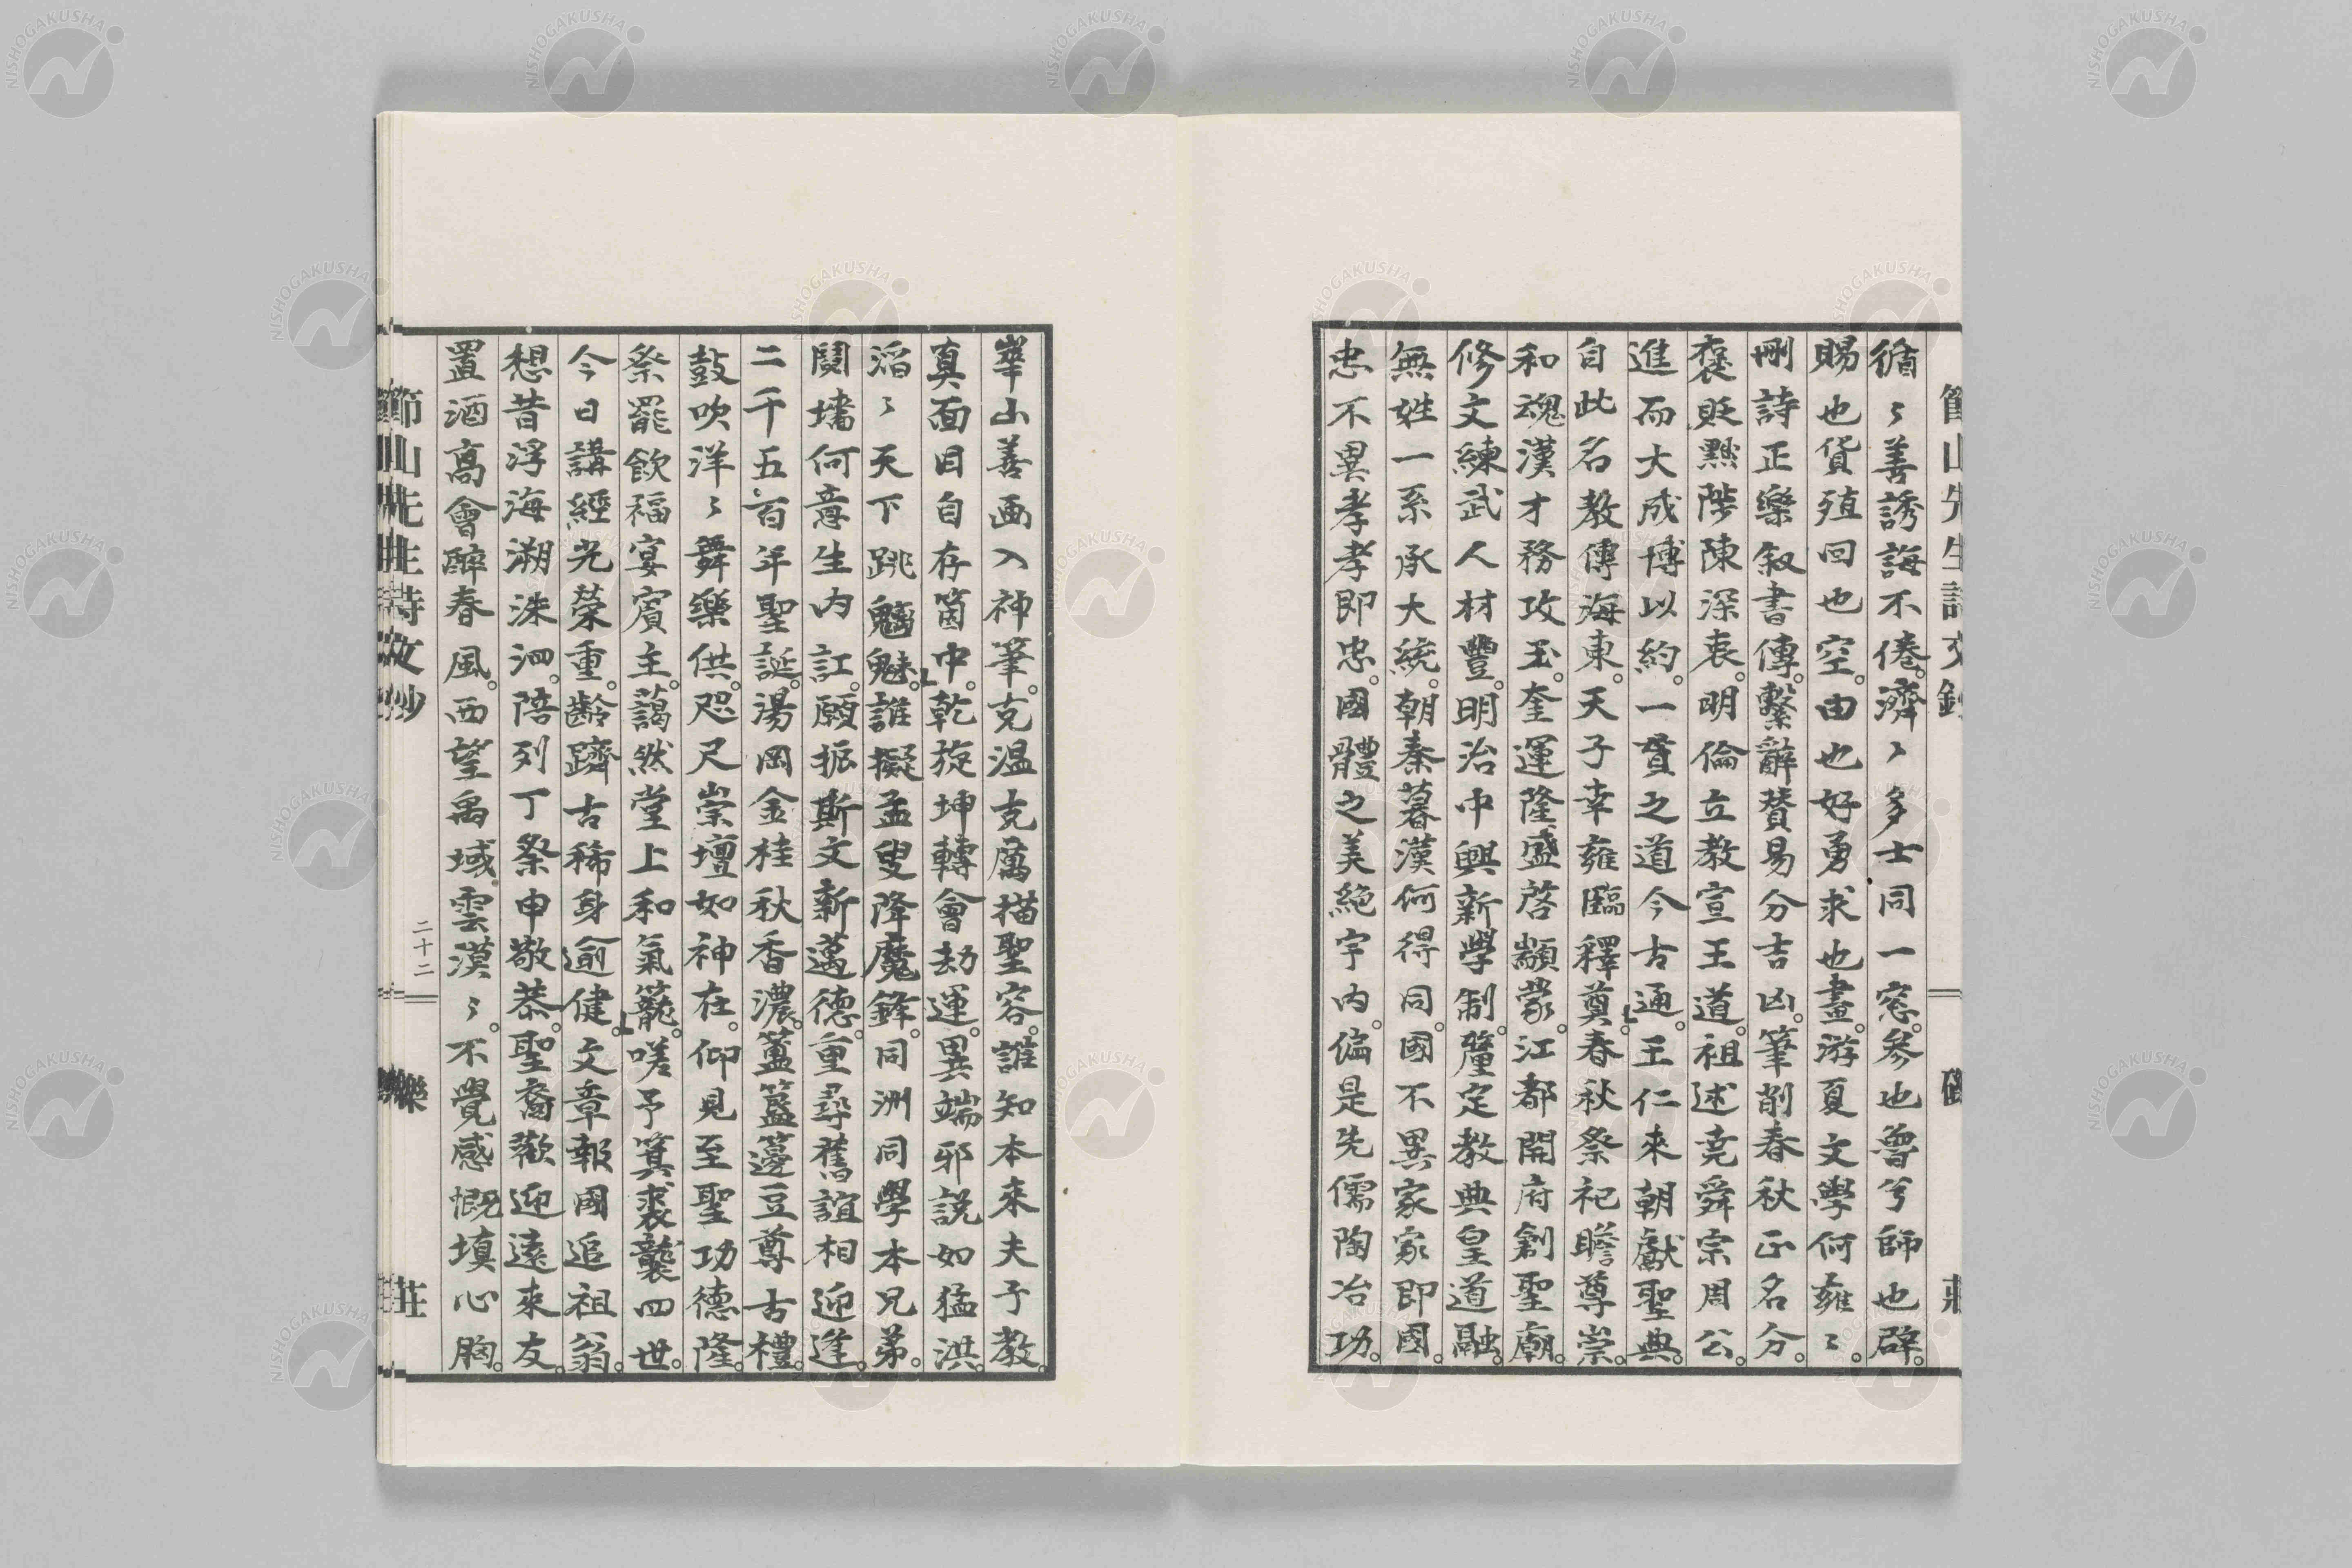 循〻善誘誨不倦。濟〻多士同一窓。參也魯兮師也辟。
賜也貨殖回也空。由也好勇求也畫。游夏文學何雍〻。
刪詩正樂叙書傳。繫辭贊易分吉凶。筆削春秋正名分。
褒貶黜陟陳深衷。明倫立教宣王道。祖述堯舜宗周公。
進而大成博以約。一貫之道今古通。王仁來朝獻聖典。
自此名教傳海東。天子幸雍臨釋奠。春秋祭祀瞻尊崇。
和魂漢才務攻玉。奎運隆盛啓顓蒙。江都開府創聖廟。
修文練武人材豐。明治中興新學制。釐定教典皇道融。
無姓一系承大統。朝秦暮漢何得同。國不異家家即國。
忠不異孝孝即忠。國體之美絶宇内。偏是先儒陶冶功。
崋山善画入神筆。克温克厲描聖容。誰知本來夫子教。
真面目自存箇中。乾旋坤轉會劫運。異端邪説如猛洪。
滔〻天下跳魑魅。誰擬孟叟降魔鋒。同洲同學本兄弟。
鬩墻何意生内訌。願振斯文新邁德。重尋舊誼相迎逢。
二千五百年聖誕。湯岡金桂秋香濃。簠簋籩豆尊古禮。
鼓吹洋〻舞樂供。咫尺崇壇如神在。仰見至聖功德隆。
祭罷飲福宴賓主。藹然堂上和氣籠。嗟予箕裘襲四世。
今日講經光榮重。齡躋古稀身逾健。文章報國追祖翁。
想昔浮海溯洙泗。陪列丁祭申敬恭。聖裔歡迎遠來友。
置酒高會醉春風。西望禹域雲漠〻。不覺感慨填心胸。
節山先生詩文鈔
二十二
樂
莊